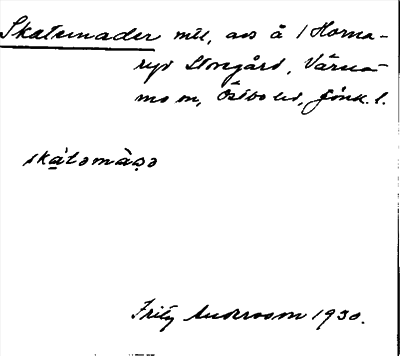 Skatemader mtl, ans å 1 Horna-
ryd Storegård, Värna-
mo sn, Östbo hd, Jönk. l.
skàtəmàsə
Fritz Andersson 1930.